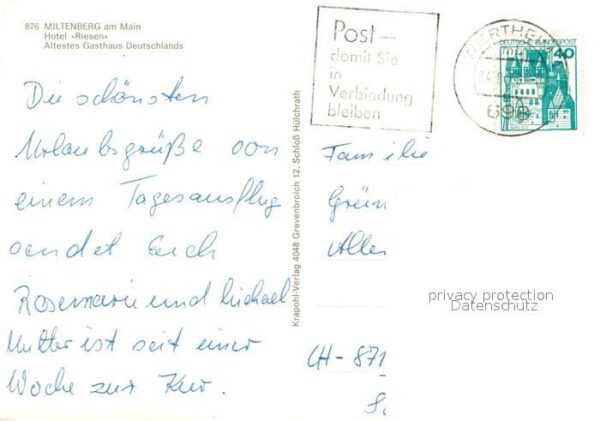 876 MILTENBERG am Main
Hotel »Riesen«
Ältestes Gasthaus Deutschlands
Post —
damit Sie
in
Verbindung
bleiben
WERTHEIM
698
DEUTSCHE BUNDESPOST
40
Die schönsten
Urlaubsgrüße von
einem Tagesausflug
sendet Euch
Rosemarie und Michael
Mutter ist seit einer
Woche zur Kur.
Krapohl-Verlag 4048 Grevenbroich 12, Schloß Hülchrath
Familie
Grün
Allen
CH-871
privacy protection
Datenschutz